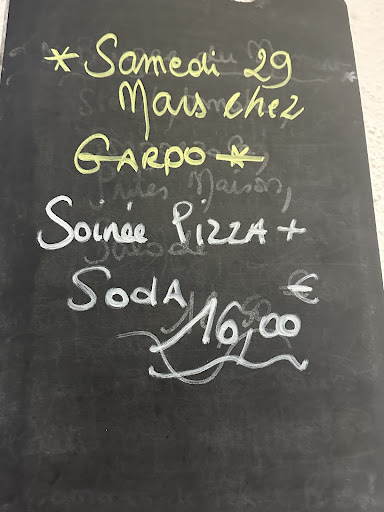 * Samedi 29
Mars chez
GARPO *
Soirée PIZZA +
SODA
16,00 €